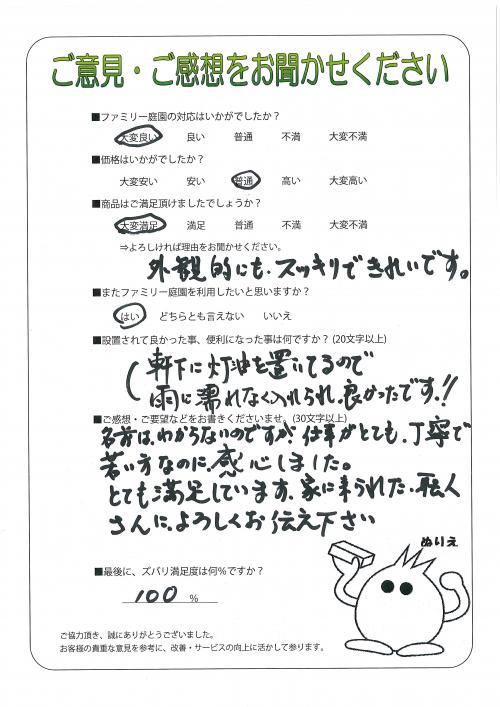 ご意見・ご感想をお聞かせください
■ファミリー庭園の対応はいかがでしたか？
大変良い 良い 普通 不満 大変不満
■価格はいかがでしたか？
大変安い 安い 普通 高い 大変高い
■商品はご満足頂けましたでしょうか？
大変満足 満足 普通 不満 大変不満
⇒よろしければ理由をお聞かせください。
外観的にも、スッキリできれいです。
■またファミリー庭園を利用したいと思いますか？
はい どちらとも言えない いいえ
■設置されて良かった事、便利になった事は何ですか？(20文字以上)
軒下に灯油を置いてるので
雨に濡れなく入れられ、良かったです!!
■ご感想・ご要望などをお書きくださいませ。(30文字以上)
名前は、わからないのですが、仕事がとても、丁寧で
若い方なのに、感心しました。
とても満足しています、家に来られた、職人
さんに、よろしくお伝え下さい
ぬりえ
■最後に、ズバリ満足度は何％ですか？
100 ％
ご協力頂き、誠にありがとうございました。
お客様の貴重な意見を参考に、改善・サービスの向上に活かして参ります。